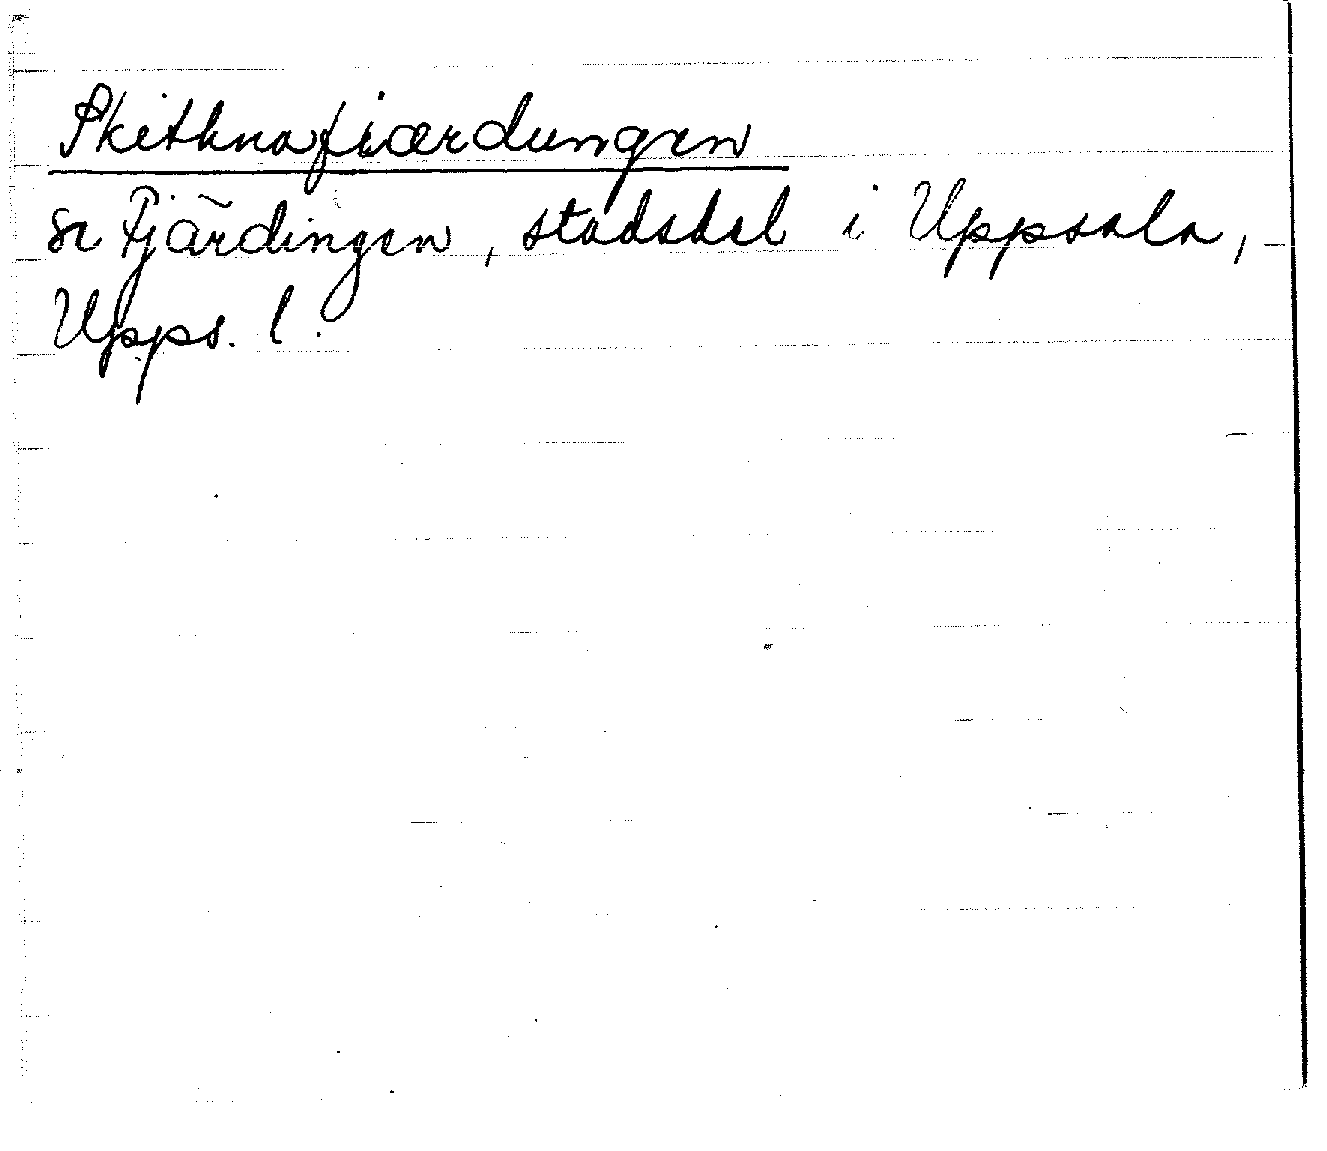 Skithnafiærdungen
se Fjärdingen, stadsdel i Uppsala,
Upps. l.